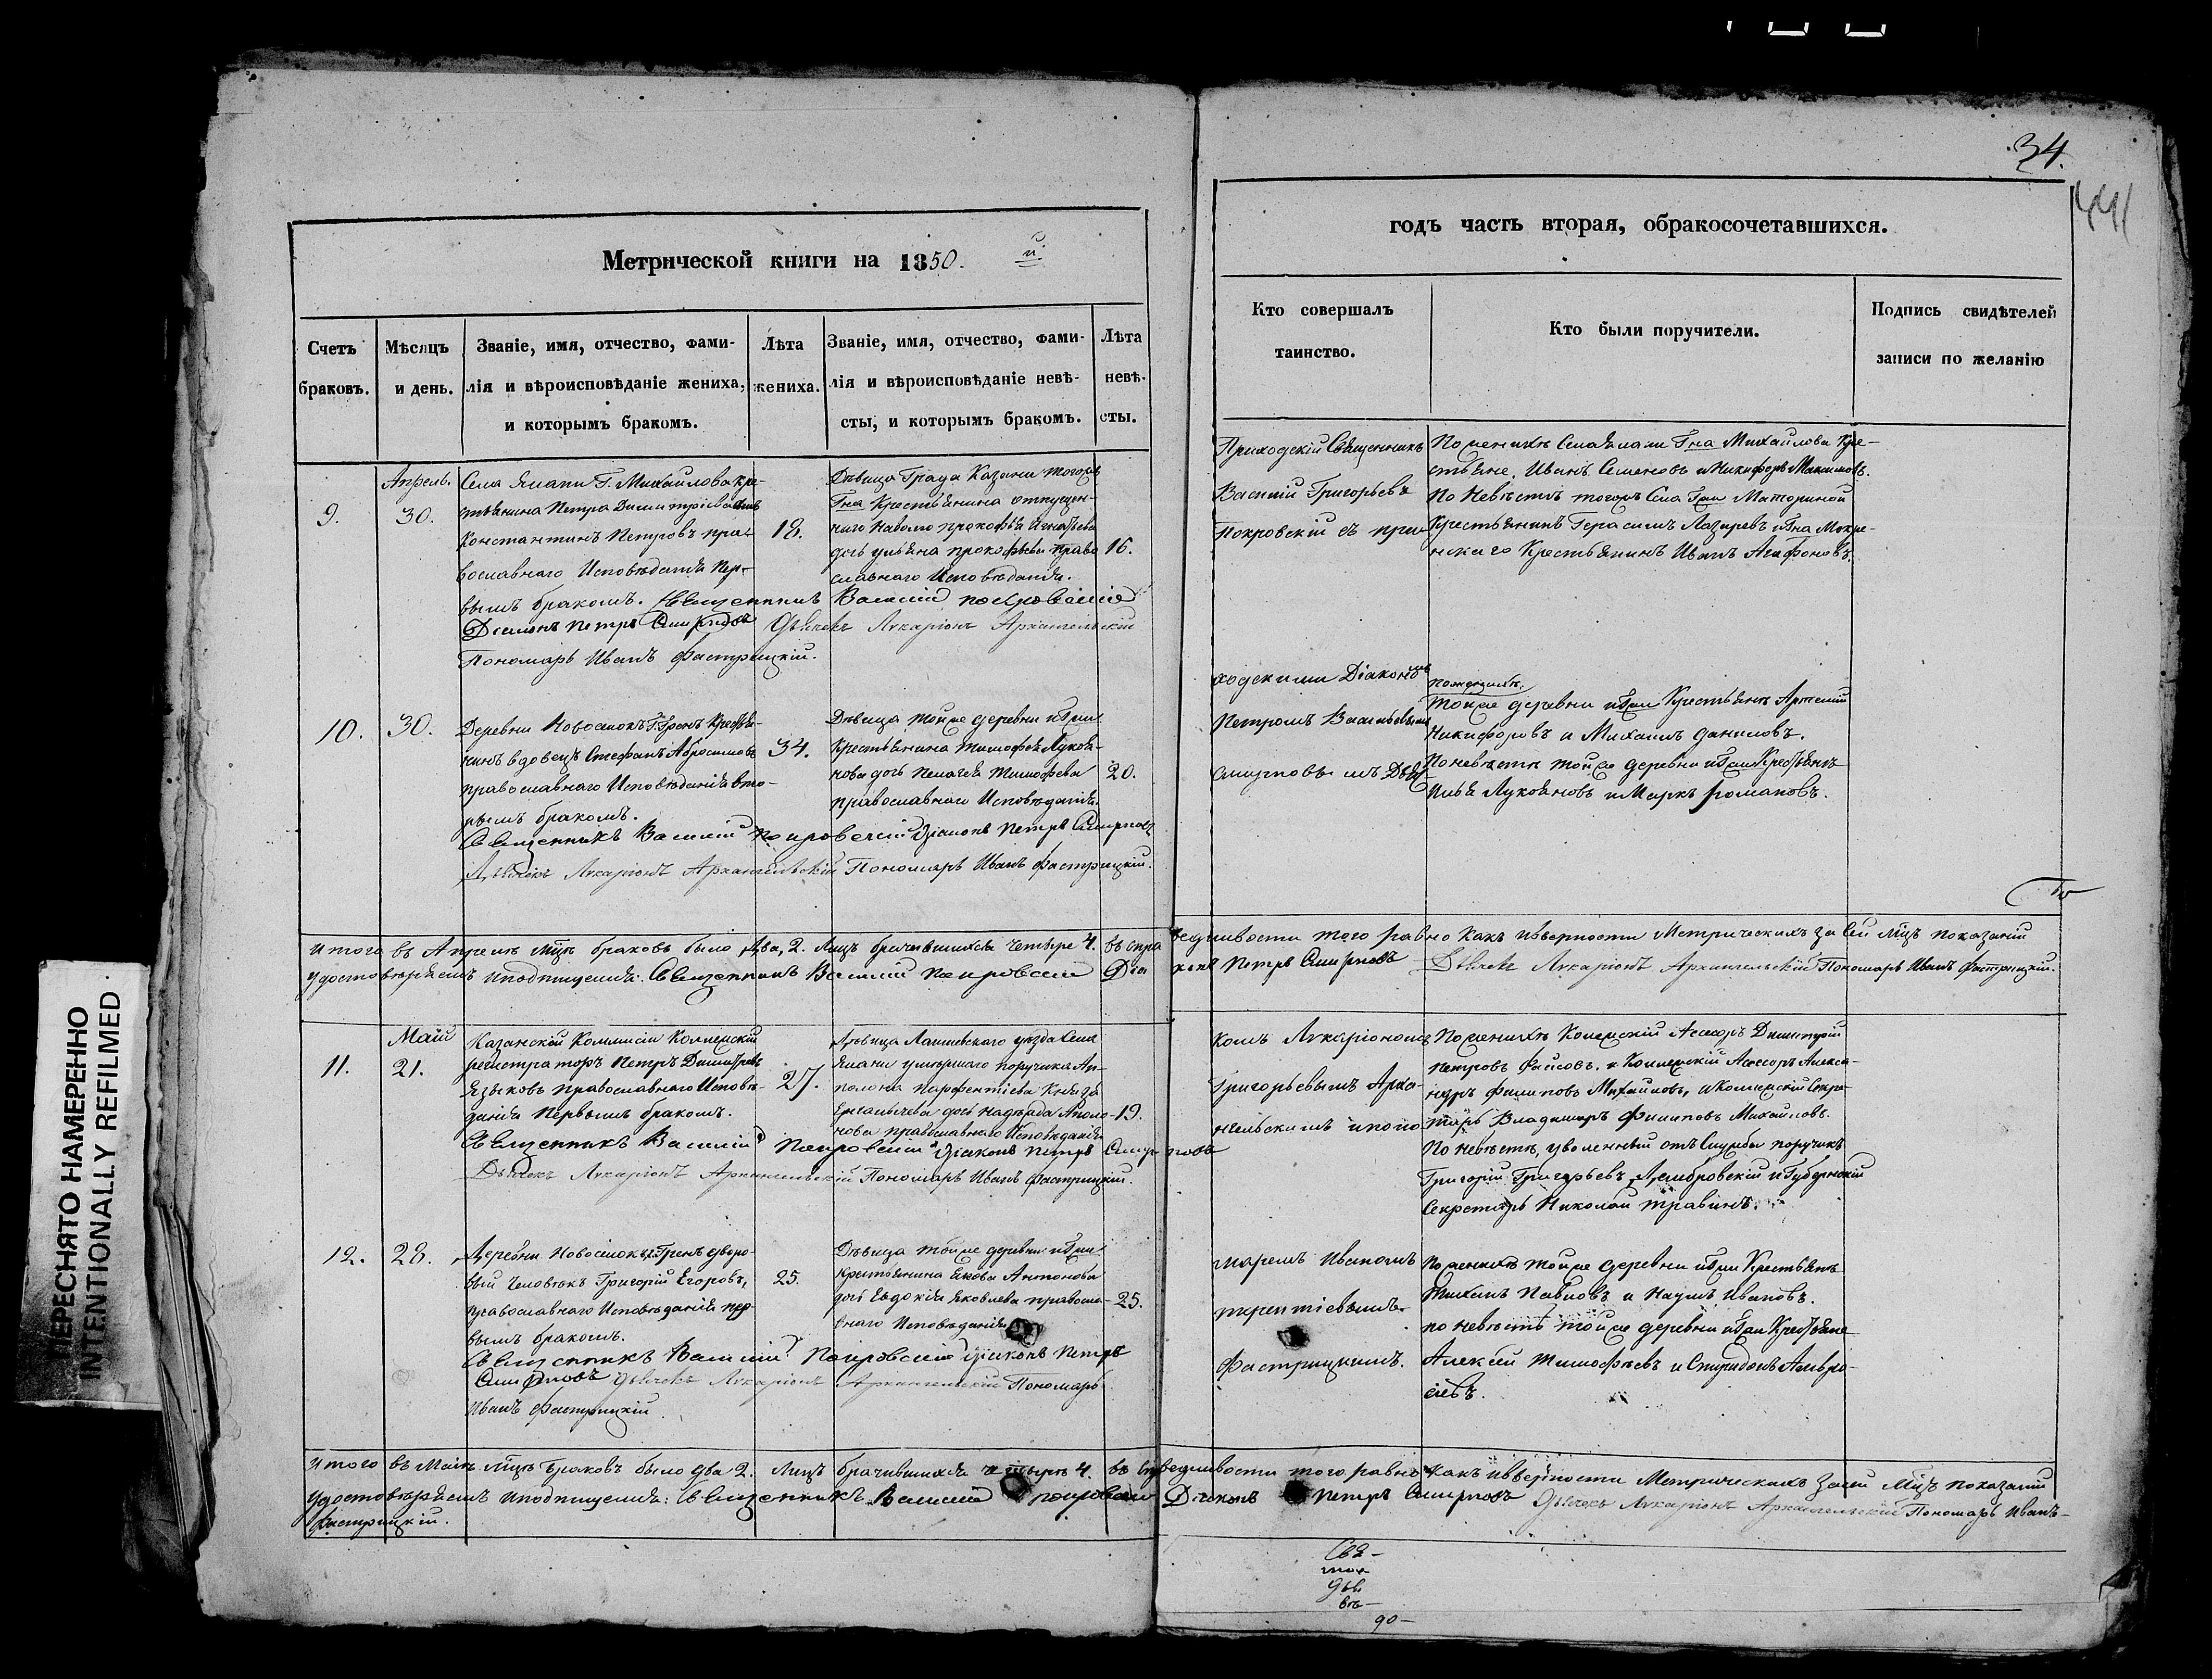 34.
441
Метрической книги на 1850.
годъ часть вторая, обракосочетавшихся.
Счетъ браковъ.
Мѣсяцъ и день.
Званіе, имя, отчество, фами-
лія и вѣроисповѣданіе жениха,
и которымъ бракомъ.
Лѣта жениха.
Званіе, имя, отчество, фами-
лія и вѣроисповѣданіе невѣ-
сты, и которымъ бракомъ.
Лѣта невѣ-
сты.
Кто совершалъ
таинство.
Кто были поручители.
Подпись свидѣтелей
записи по желанію
9.
Апрель.
30.
Села Г. Михайлова кре-
стьянина Петра Димитріева
Константинъ Петровъ пра-
вославнаго Исповѣданія пер-
вымъ бракомъ. Священникъ Василій Покровскій
Діаконъ Петръ Смирновъ Дьячекъ Иларіонъ Архангельскій
Пономарь Иванъ Фастрицкій.
18.
Дѣвица Града Казани тогожъ
Гна Крестьянина отпущен-
наго Прокофья Игнатьева
дочь Ульяна Прокофьева право
славнаго Исповѣданія.
16.
Приходскій Священникъ
Василій Григорьевъ
Покровскій съ при-
По женихѣ Села Гна Михайлова Кре-
стьяне, Иванъ Семеновъ и Никифоръ Максимовъ.
По Невѣстѣ тогожъ Села Гжи
Крестьянинъ Герасимъ Лазаревъ и Гна Мокре-
нскаго Крестьянинъ Иванъ Агафоновъ.
10.
30.
Деревни Новоселокъ Кресть-
нинъ вдовецъ Стефанъ Абросимовъ
православнаго Исповѣданія вто-
рымъ бракомъ.
Священникъ Василій Покровскій Діаконъ Петръ Смирновъ
Дьячекъ Иларіонъ Архангельскій Пономарь Иванъ Фастрицкій.
34.
Дѣвица тойже деревни и Гжи
Крестьянина Тимофея Лукоя-
нова дочь Пелагея Тимофеева
православнаго Исповѣданія.
20.
ходскими Діакономъ
Петромъ Васильевымъ
Смирновымъ Дьяч-
По женихѣ.
Тойже деревни и Гжи Крестьяне Артемій
Никифоровъ и Михаилъ Даниловъ.
По невѣстѣ тойже деревни и Гжи Крестьяне
Илья Лукояновъ и Маркъ Романовъ.
Итого въ Апрелѣ мцѣ браковъ было два, 2. Лицъ брачившихся четыре 4. въ спра
ведливости того равно какъ и вѣрности Метрическихъ за Сей мцъ показаній
удостовѣряемъ и подпишемся: Священникъ Василій Покровскій Діа
конъ Петръ Смирновъ Дьячекъ Иларіонъ Архангельскій Пономарь Иванъ Фастрицкій.
11.
Май
21.
Казанской Коммисіи Коллежскій
регистраторъ Петръ Димитріевъ
Языковъ Православнаго Исповѣ-
данія Первымъ бракомъ.
Священникъ Василій Покровскій Діаконъ Петръ Смирновъ
Дьячекъ Иларіонъ Архангельскій Пономарь Иванъ Фастрицкій.
27.
Дѣвица Лаишевскаго уѣзда Села
умершаго поручика Ап-
полона Парфентіева Князя
дочь Надѣжда Аполо-
нова православнаго Исповѣданія
19.
комъ Иларіономъ
Григорьевымъ Арха-
нгельскимъ и поно
По женихѣ Колежскій Асесоръ Димитрій
Петровъ и Коллежскій Асесоръ Алекса-
ндръ Филиповъ Михайловъ, и Коллежскій Секре-
тарь Владимиръ Филиповъ Михайловъ.
По невѣстѣ, уволенный отъ Службы поручикъ
Григорій Григорьевъ и Губернскій
Секретарь Николай Травинъ.
12.
28.
Деревни Новоселокъ дворо-
вый человѣкъ Григорій Егоровъ,
православнаго Исповѣданія пер-
вымъ бракомъ.
Священникъ Василій Покровскій Діаконъ Петръ
Смирновъ Дьячекъ Иларіонъ Архангельскій Пономарь
Иванъ Фастрицкій
25.
Дѣвица тойже деревни и Гжи
Крестьянина Якова Антонова
дочь Евдокія Яковлева правосла-
внаго Исповѣданія
25.
маремъ Иваномъ
терентіевымъ
Фастрицкимъ.
По женихѣ тойже деревни и Гжи Крестьяне
Павловъ и Наумъ Ивановъ.
по невѣстѣ тойже деревни и Гжи Крестьяне
Алексѣй Тимофѣевъ и Спиридонъ Амвро-
сіевъ.
Итого въ Маѣ мцѣ браковъ было два 2. Лицъ брачившихся четыре 4. въ спра
ведливости того равно какъ и вѣрности Метрическихъ за сей мцъ показаній
удостовѣряемъ и подпишемся: Священникъ Василій Покровскій
Діаконъ Петръ Смирновъ Дьячекъ Иларіонъ Архангельскій Пономарь Иванъ
Фастрицкій.
90-
ПЕРЕСНЯТО НАМЕРЕННО
INTENTIONALLY REFILMED